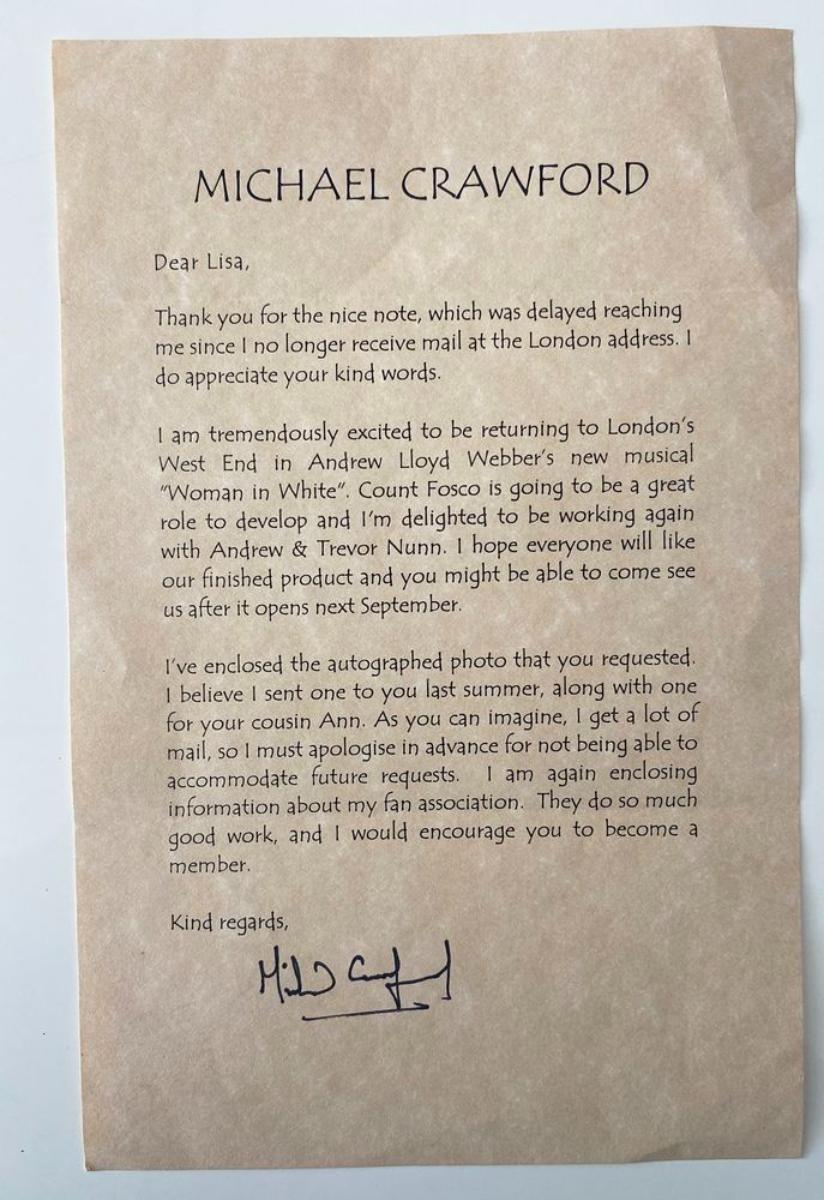 MICHAEL CRAWFORD
Dear Lisa,
Thank you for the nice note, which was delayed reaching
me since I no longer receive mail at the London address. I
do appreciate your kind words.
I am tremendously excited to be returning to London's
West End in Andrew Lloyd Webber's new musical
"Woman in White". Count Fosco is going to be a great
role to develop and I'm delighted to be working again
with Andrew & Trevor Nunn. I hope everyone will like
our finished product and you might be able to come see
us after it opens next September.
I've enclosed the autographed photo that you requested.
I believe I sent one to you last summer, along with one
for your cousin Ann. As you can imagine, I get a lot of
mail, so I must apologise in advance for not being able to
accommodate future requests. I am again enclosing
information about my fan association. They do so much
good work, and I would encourage you to become a
member.
Kind regards,
Michael Crawford